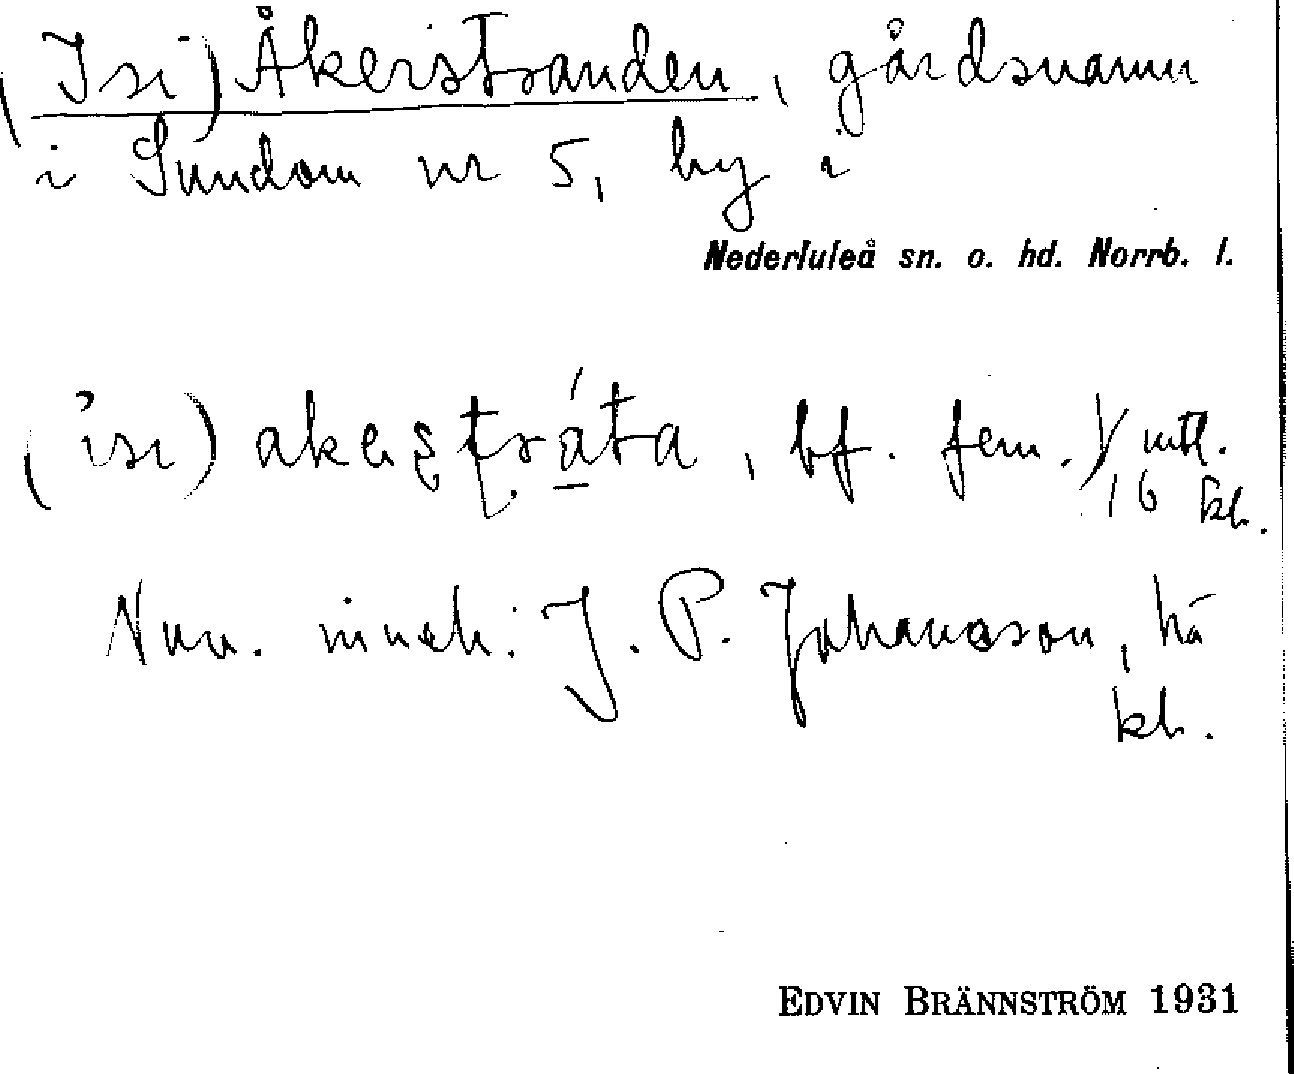 (Isi) Åkerstranden, gårdsnamn
i Sundom nr 5, by i
Nederluleå sn. o. hd. Norrb. l.
, bf. fem. 1/16 mtl.
Nuv. inneh: J. P. Johansson,
EDVIN BRÄNNSTRÖM 1931